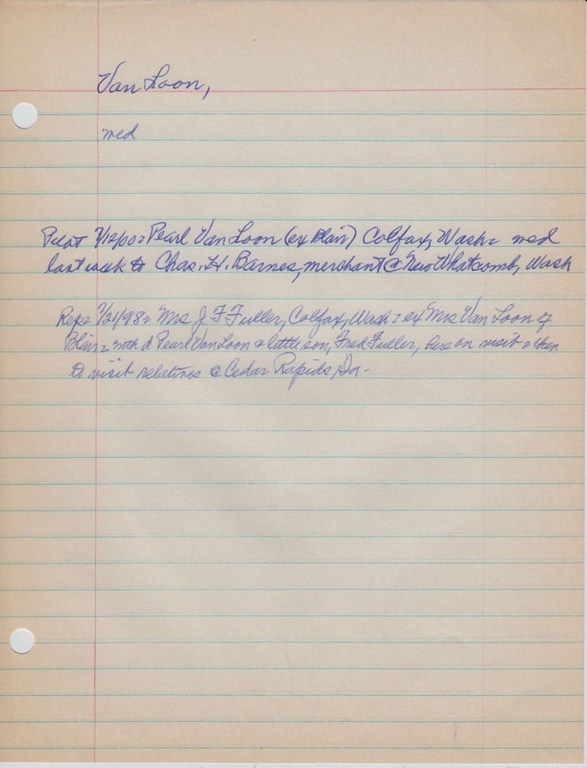 Van Loon,
med
Pilot 7/12/00 = Pearl Van Loon (ex Blair) Colfax, Wash = med
last week to Chas. H. Barnes, merchant @ New Whatcomb, Wash
Rep = 7/21/98 = Mrs J F Fuller, Colfax, Wash = ex Mrs Van Loon of
Blair = with d Pearl Van Loon & little son, Fred Fuller, here on visit & then
to visit relatives @ Cedar Rapids, Ia.